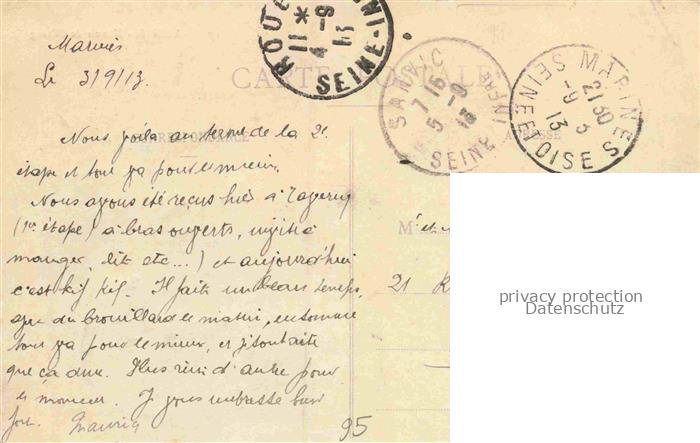 Marines
Le 3/9/13
CARTE POSTALE
CORRESPONDANCE
ADRESSE
Nous voilà au terme de la 2e
étape et tout va pour le mieux.
Nous avons été reçus hier à Taverny
(1re étape) à bras ouverts,
manger, lit etc...) et aujourd'hui
c'est kif kif. Il fait un beau temps,
du brouillard le matin, en somme
tout va pour le mieux, et je souhaite
que ça dure. Plus rien d'autre pour
le moment. Je vous embrasse bien
fort.
95
ROUEN
11 *
4 -9
13
SEINE-IN
SANVIC
7 15
5 -9
13
SEINE INFRE
MARINES
21 30
3
-9
13
SEINE ET OISE
M
et
21 R
privacy protection
Datenschutz